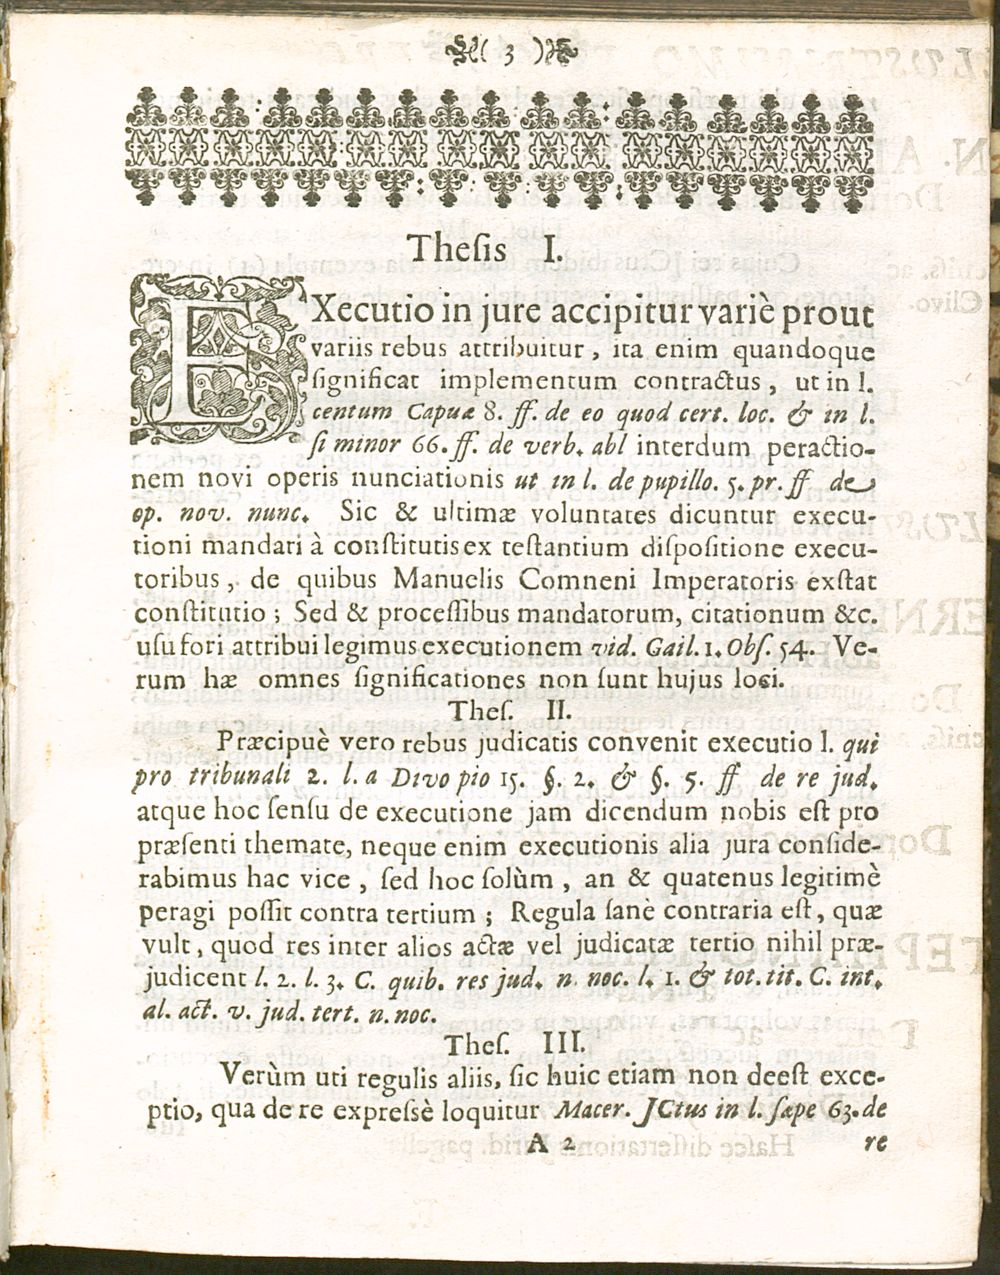 ( 3 )
Theſis I.
EXecutio in jure accipitur variè prout
variis rebus attribuitur, ita enim quandoque
ſignificat implementum contractus, ut in l.
centum Capuæ 8. ff. de eo quod cert. loc. & in l.
ſi minor 66. ff. de verb. abl interdum peractio-
nem novi operis nunciationis ut in l. de pupillo. 5. pr. ff de
op. nov. nunc. Sic & ultimæ voluntates dicuntur execu-
tioni mandari à conſtitutis ex teſtantium diſpoſitione execu-
toribus, de quibus Manuelis Comneni Imperatoris exſtat
conſtitutio; Sed & proceſſibus mandatorum, citationum &c.
uſu fori attribui legimus executionem vid. Gail. 1. Obſ. 54. Ve-
rum hæ omnes ſignificationes non ſunt hujus loci.
Theſ. II.
Præcipuè vero rebus judicatis convenit executio l. qui
pro tribunali 2. l. a Divo pio 15. §. 2. & §. 5. ff de re jud.
atque hoc ſenſu de executione jam dicendum nobis eſt pro
præſenti themate, neque enim executionis alia jura conſide-
rabimus hac vice, ſed hoc ſolùm, an & quatenus legitimè
peragi poſſit contra tertium; Regula ſanè contraria eſt, quæ
vult, quod res inter alios actæ vel judicatæ tertio nihil præ-
judicent l. 2. l. 3. C. quib. res jud. n. noc. l. 1. & tot. tit. C. int.
al. act. v. jud. tert. n. noc.
Theſ. III.
Verùm uti regulis aliis, ſic huic etiam non deeſt exce-
ptio, qua de re expreſsè loquitur Macer. JCtus in l. ſæpe 63. de
A 2 re